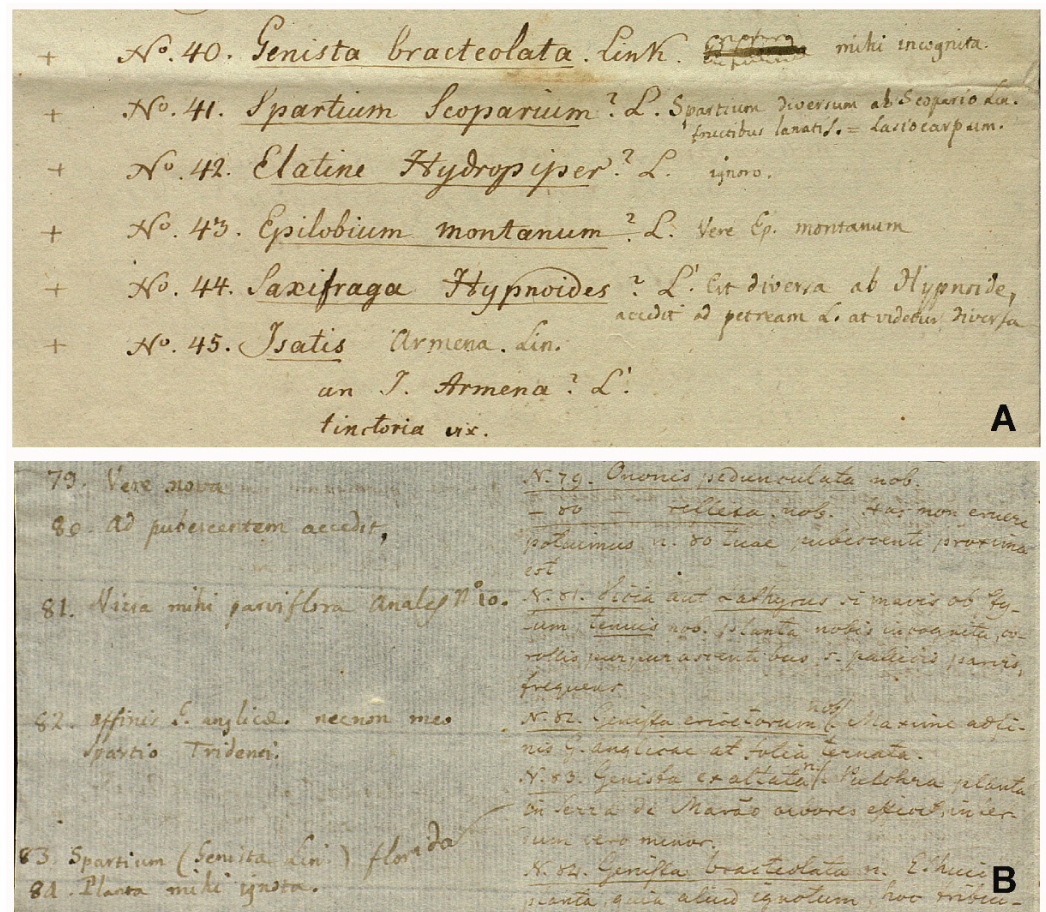 + No. 40. Genista bracteolata. Link. mihi incognita.
+ No. 41. Spartium Scoparium? L. Spartium diversum ab Scopario Lin.
fructibus lanatis. = Lasiocarpum.
+ No. 42. Elatine Hydropiper? L. ignoro.
+ No. 43. Epilobium montanum? L. Vere Ep. montanum
+ No. 44. Saxifraga Hypnoides? L. Est diversa ab Hypnoide,
accedit ad petream L. at videtur diversa
+ No. 45. Isatis Armena. Lin.
an I. Armena? L.
tinctoria vix.
A
79. Vere nova
80. Ad pubescentem accedit,
81. Vicia mihi parviflora Anales No 10.
82. affinis G. anglicæ. necnon meo
spartio Tridenti.
83. Spartium (Genista Lin.) florida
84. Planta mihi ignota.
N. 79. Ononis pedunculata nob.
– 80 – nob. Has non eruere
potuimus n. 80 tuae pubescenti proxima
est
N. 81. Vicia aut Lathyrus si mavis ob
tenuis nob. planta nobis incognita,
purpurascentibus, s. pallidis parvis,
frequens.
N. 82. Genista ericetorum nob. Maxime affi-
nis G. anglicae at folia ternata.
N. 83. Genista exaltata n. Pulchra planta
in Serra de Marão arbores
vero minor.
N. 84. Genista bracteolata n.
planta, quia aliud ignotum, hoc
B